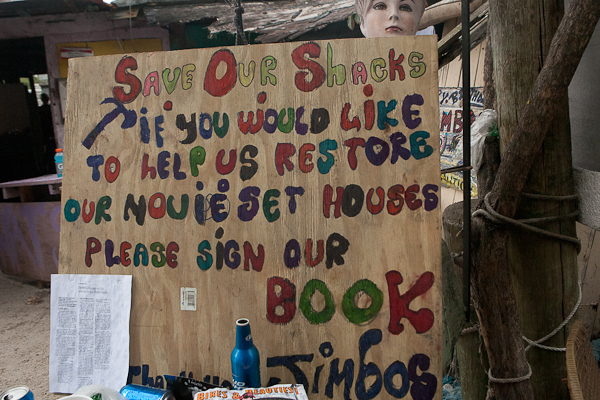 Save Our Shacks
if you would like
to help us restore
our movie set houses
please sign our
BOOK
Jimbos
BIKES & BEAUTIES!